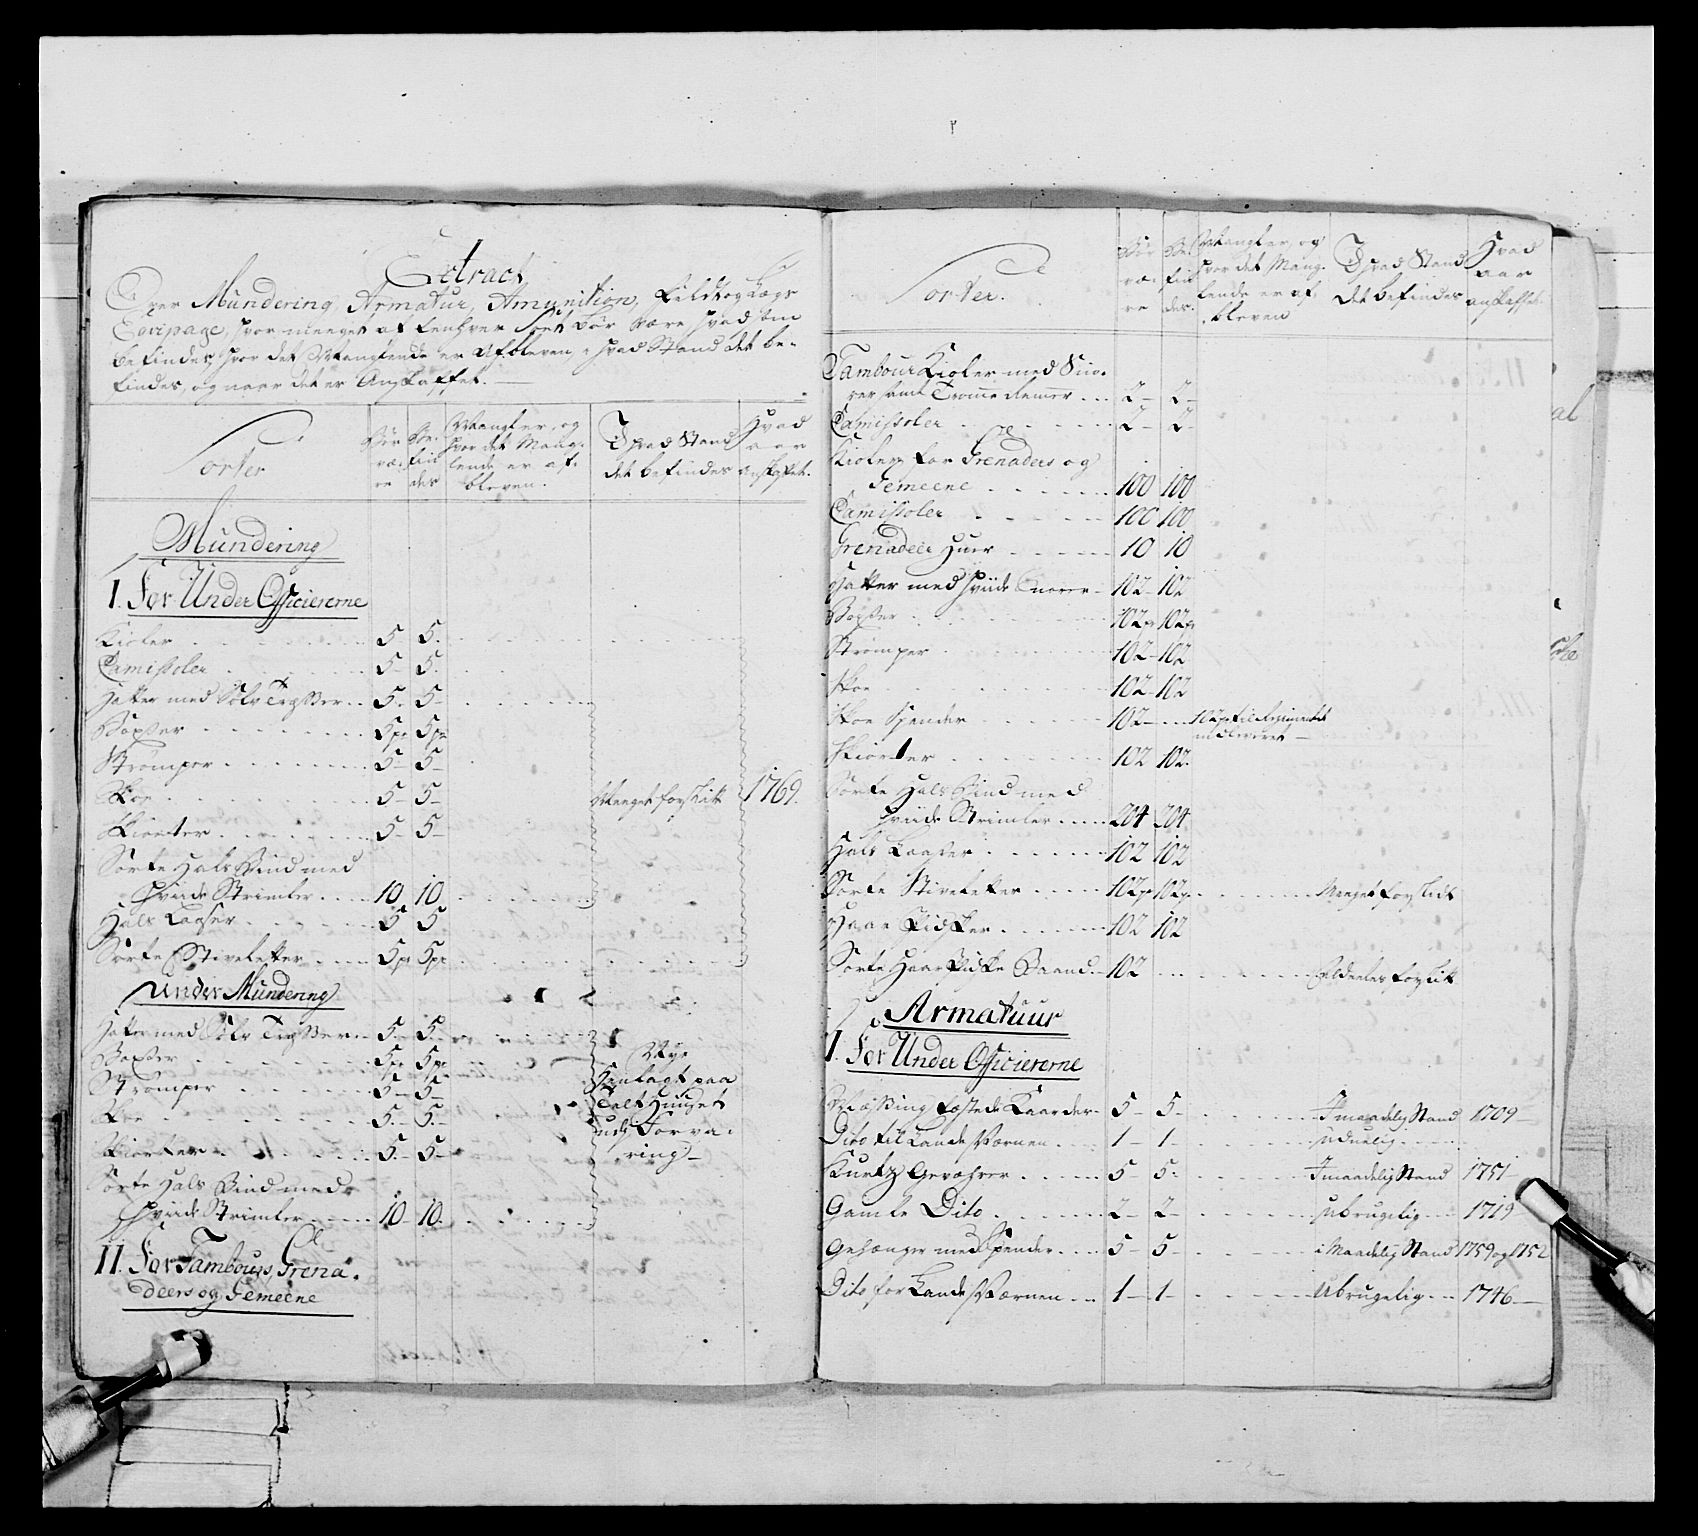 Extract
Over Mundering, Armatur, Amunition, Feldtog tøgs
Eqvipage, hvor meeget af Eenhver Sort bør være hvad som
befindes, hvor det Manglende er Afbleven, i hvad Stand det be-
findes, og naar det er Anskaffet. —
Sorter
Bør væ- re
Be- fin des
Mangler, og hvor det Mang- lende er af- bleven.
I hvad Stand det befindes
Hvad aar anskaffet.
Mundering
I. For Under Officiererne
Kioler 5 5.
Camissoler 5 5.
Hatter med Sølv Tresser 5. 5
Boxser 5pr 5pr
Strømper 5 5
Skoe 5 5 Meeget forslitt 1769.
Skiorter 5 5
Sorte Hals Bind med
hviide Strimler 10 10
Hals Laaser 5 5
Sorte Stivletter 5pr 5pr
Under Mundering
Hatter med Sølv Tresser 5 5.
Boxser 5pr 5pr
Strømper 5 5
Skoe 5. 5.
Skiorter 5. 5
Sorte Hals Bind med
hviide Strimler 10 10.
Nye
Henlagt paa
Telt Huuset
udj Forva-
ring
II. For Tambours, Grena-
deers og Gemeene
Sorter.
Bør væ- re
Be- fin des.
Mangler, og hvor det Mang- lende er af- bleven
I hvad Stand det befindes
Hvad aar anskaffet.
Tambour Kioler med Snor-
rer samt Tromme Remer 2 2
Camissoler 2 2
Kioler for Grenaders og
Gemeene 100 100
Camissoler 100 100
Grenadeer Huer 10 10
Hatter med hviide Snorer 102 102
Boxser 102pr 102pr
Strømper 102 102
Skoe 102 102
Skoe Spender 102 102pr til Regimentet
indleveret
Skiorter 102 102.
Sorte Hals Bind med
hviide Strimler 204 204
Hals Laaser 102 102
Sorte Stivletter 102pr 102pr Meeget forslidt
Haar Pidsker 102 102
Sorte Haar Pidske Baand 102 Aldeeles forslitt
Armatuur
I. For Under Officiererne
Messing fæstede Kaarder 5 5 I maadelig Stand 1709
Dito til Lande Værnen 1 1 uduelig
Kurtz Gevæhrer 5 5. I maadelig Stand 1751
Gamle Dito 2 2 ubrugelig 1719
Gehænger med Spender 5 5 i Maadelig Stand 1759 og 1752
Dito for Lande Værnen 1 1 Ubrugelig 1746